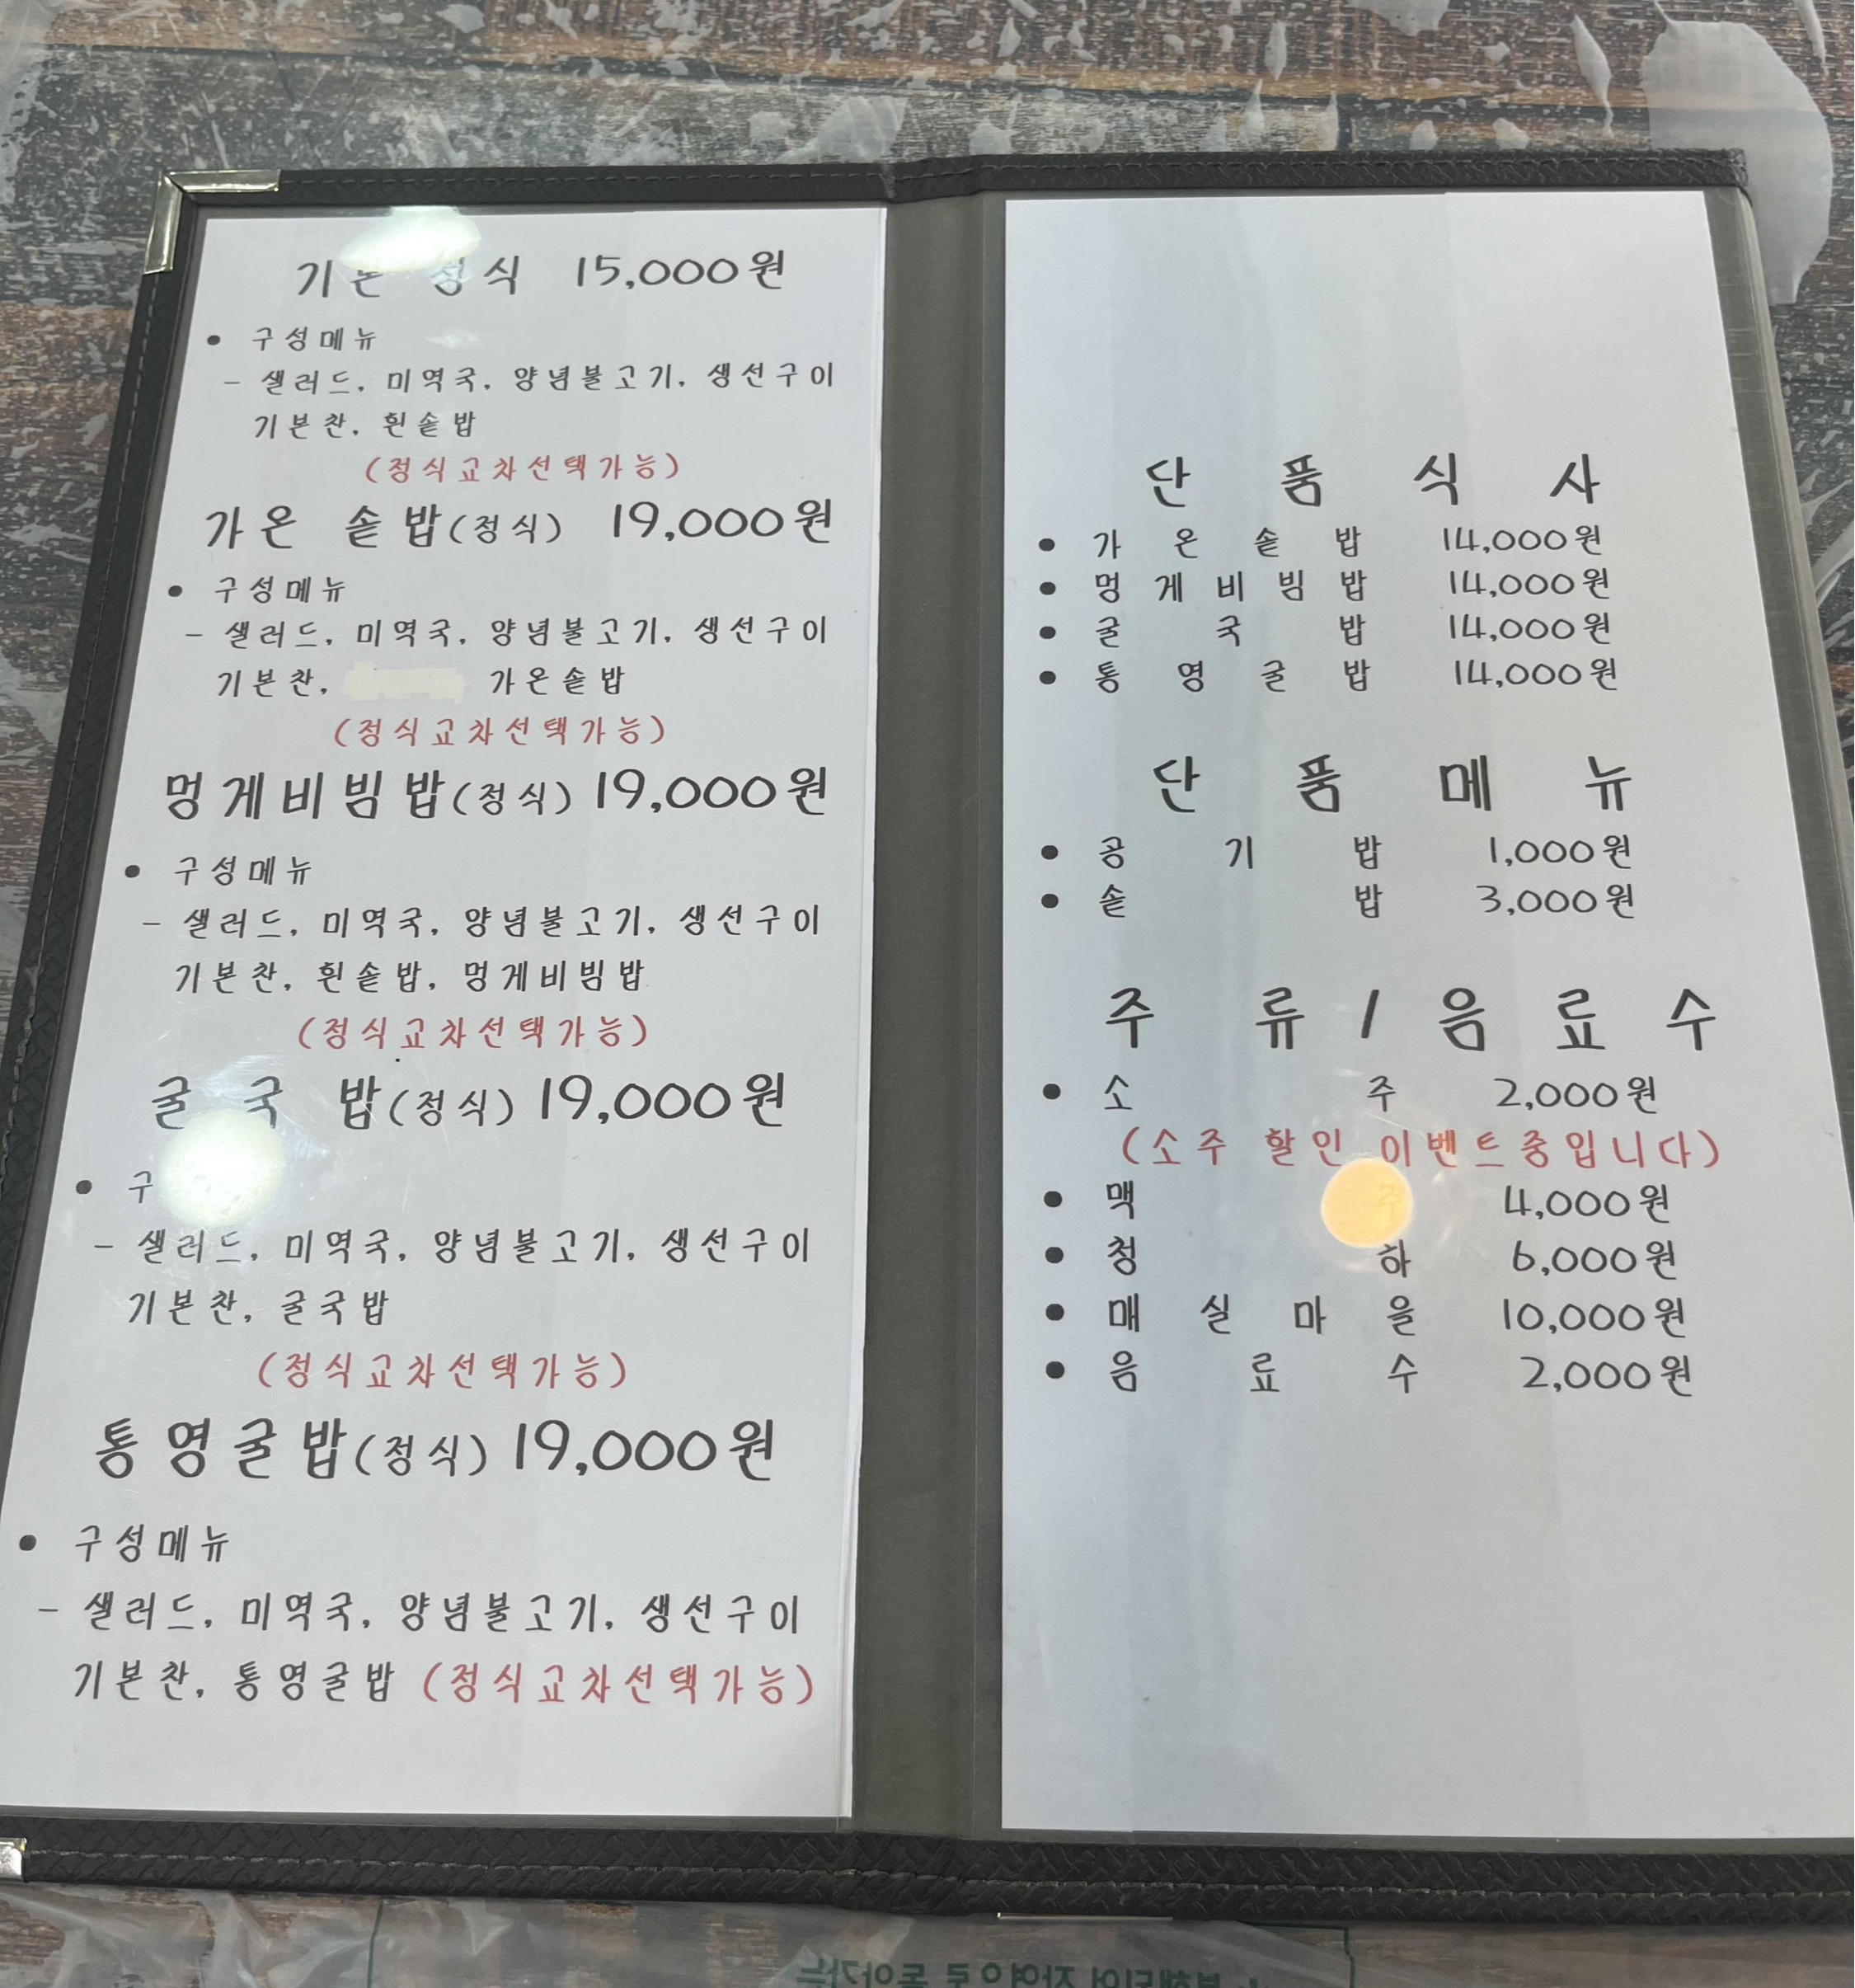 기본 정식 15,000원
• 구성메뉴
- 샐러드, 미역국, 양념불고기, 생선구이
기본찬, 흰솥밥
(정식교차선택가능)
가온 솥밥(정식) 19,000원
• 구성메뉴
- 샐러드, 미역국, 양념불고기, 생선구이
기본찬, 가온솥밥
(정식교차선택가능)
멍게비빔밥(정식) 19,000원
• 구성메뉴
- 샐러드, 미역국, 양념불고기, 생선구이
기본찬, 흰솥밥, 멍게비빔밥
(정식교차선택가능)
굴국밥(정식) 19,000원
• 구
- 샐러드, 미역국, 양념불고기, 생선구이
기본찬, 굴국밥
(정식교차선택가능)
통영굴밥(정식) 19,000원
• 구성메뉴
- 샐러드, 미역국, 양념불고기, 생선구이
기본찬, 통영굴밥 (정식교차선택가능)
단품식사
• 가온솥밥 14,000원
• 멍게비빔밥 14,000원
• 굴국밥 14,000원
• 통영굴밥 14,000원
단품메뉴
• 공기밥 1,000원
• 솥밥 3,000원
주류/음료수
• 소주 2,000원
(소주 할인 이벤트중입니다)
• 맥주 4,000원
• 청하 6,000원
• 매실마을 10,000원
• 음료수 2,000원